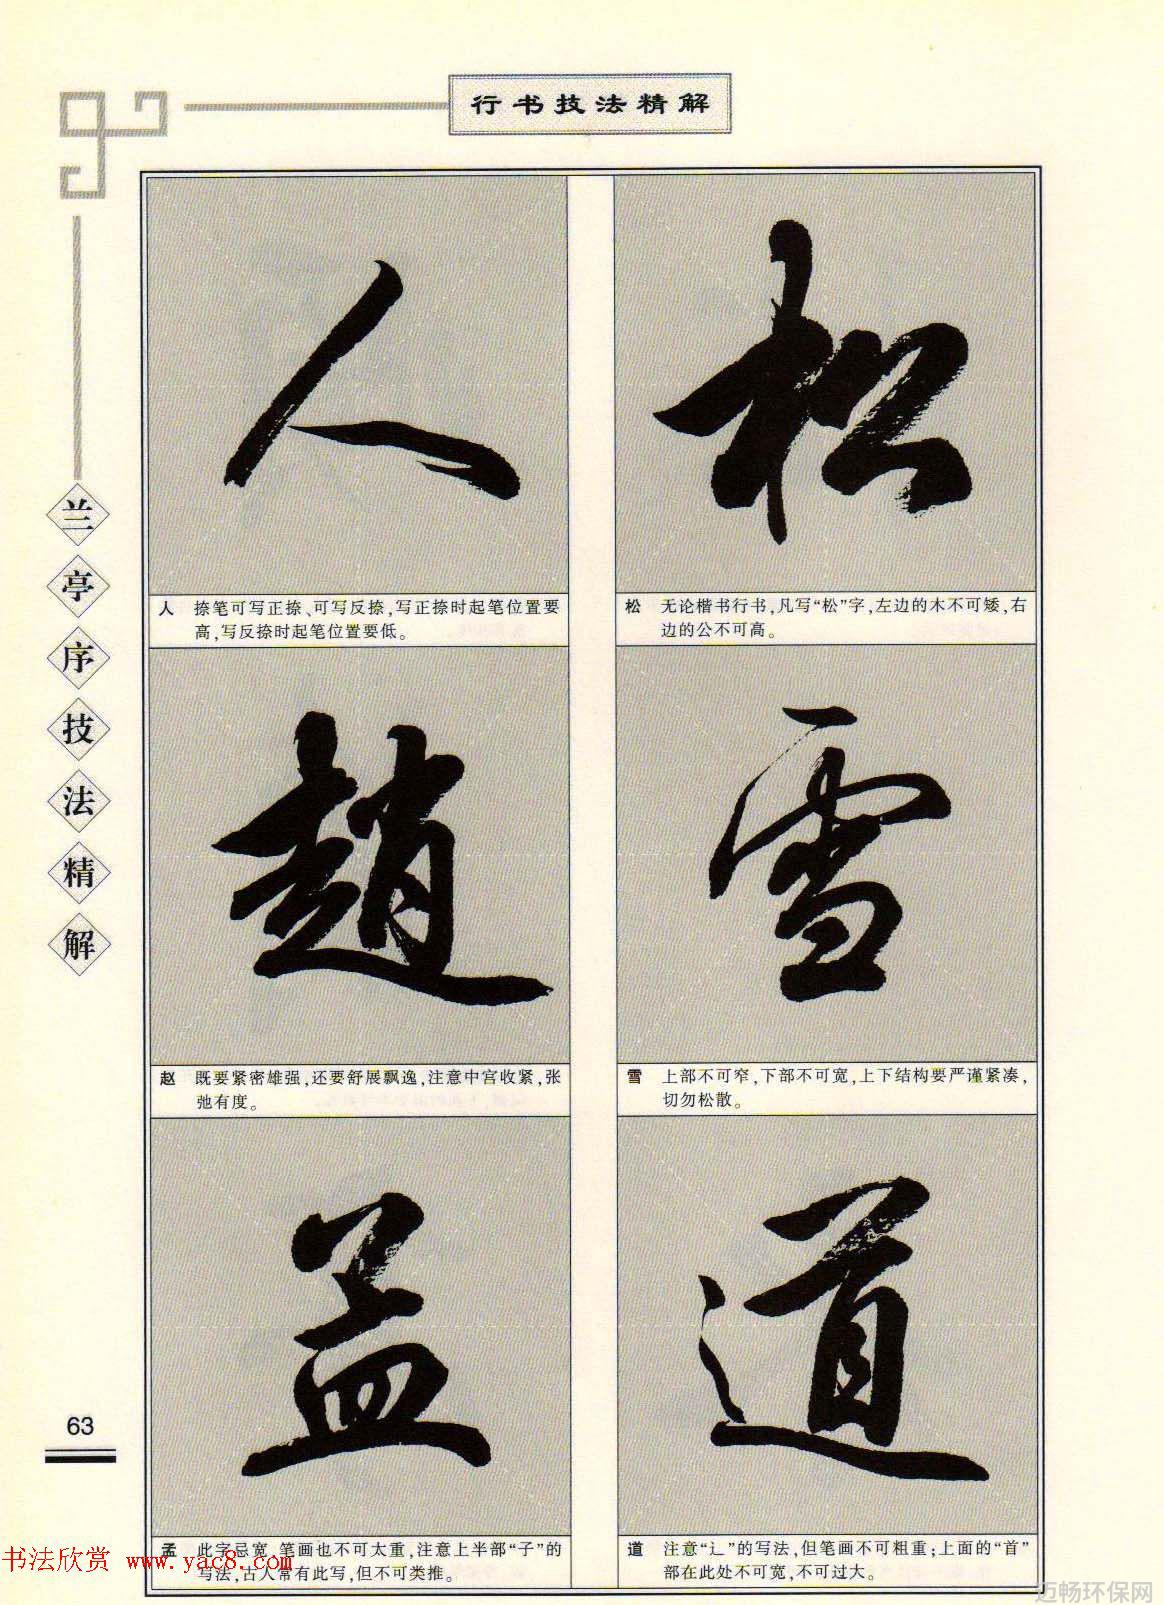 行书技法精解
兰亭序技法精解
人
松
人 捺笔可写正捺、可写反捺,写正捺时起笔位置要
高,写反捺时起笔位置要低。
松 无论楷书行书,凡写“松”字,左边的木不可矮,右
边的公不可高。
趙
雪
赵 既要紧密雄强,还要舒展飘逸,注意中宫收紧,张
弛有度。
雪 上部不可窄,下部不可宽,上下结构要严谨紧凑,
切勿松散。
孟
道
孟 此字忌宽,笔画也不可太重,注意上半部“子”的
写法,古人常有此写,但不可类推。
道 注意“辶”的写法,但笔画不可粗重;上面的“首”
部在此处不可宽,不可过大。
63
书法欣赏 www.yac8.com
迈畅环保网